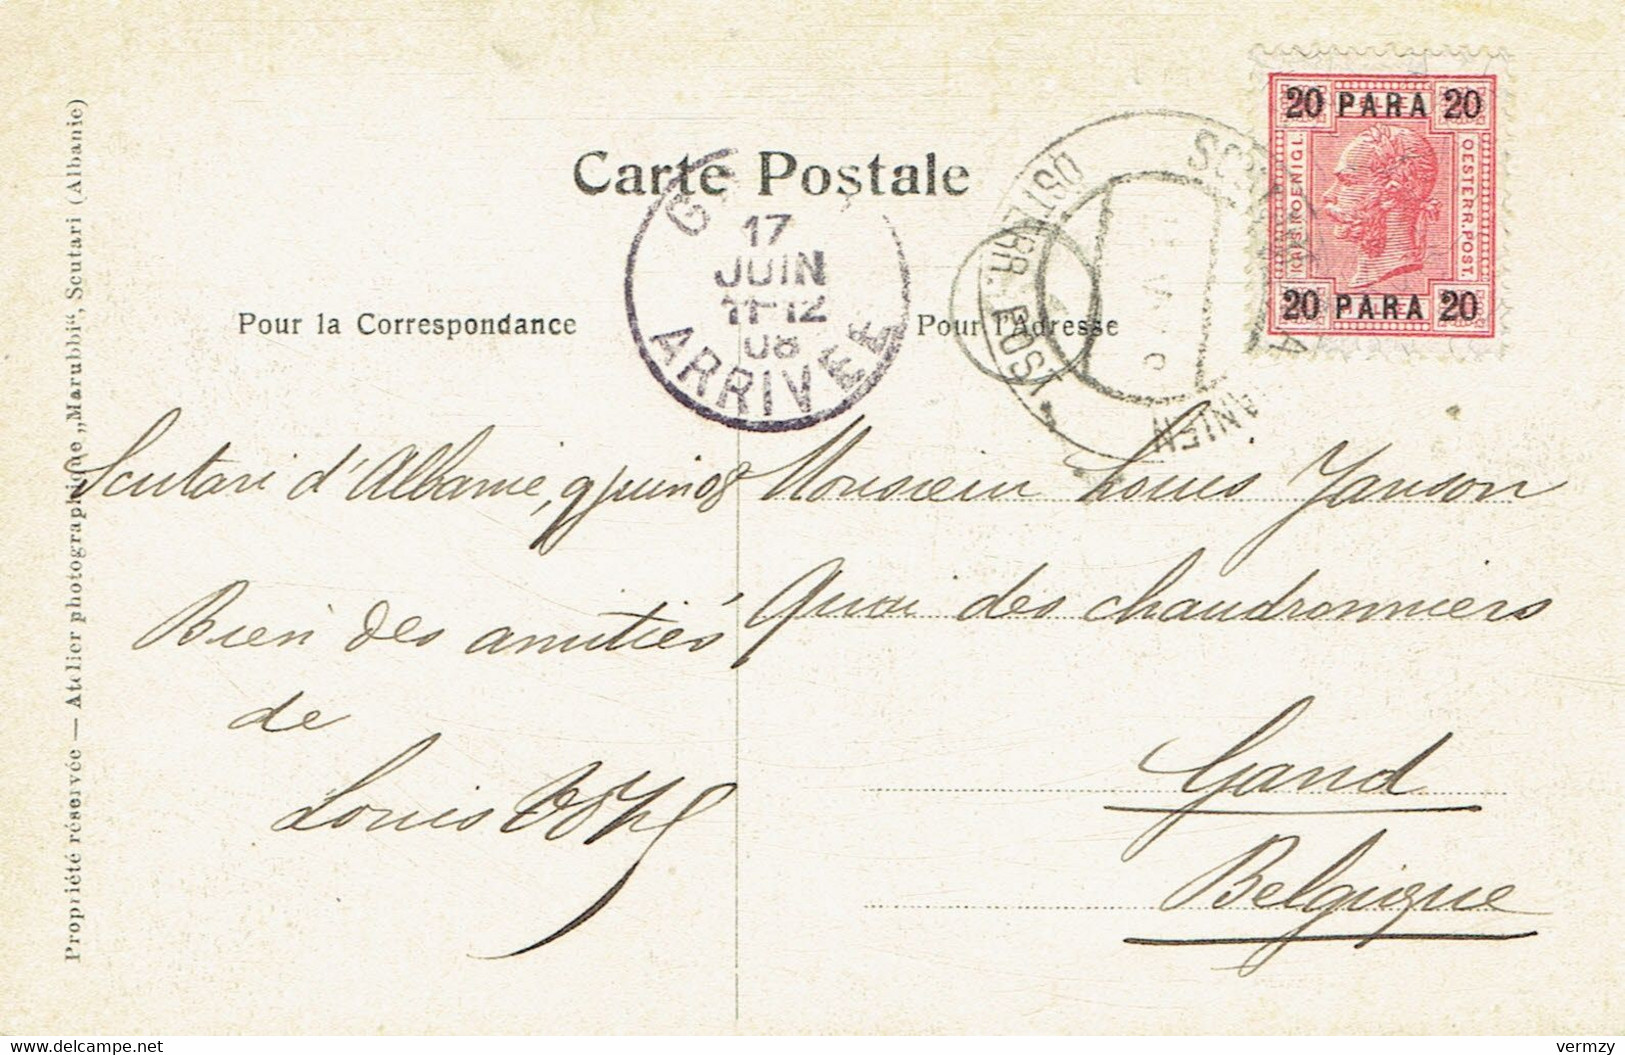 Carte Postale
Pour la Correspondance
Pour l'Adresse
20 PARA 20
KAIS. KOENIGL.
OESTERR. POST.
20 PARA 20
17
JUIN
11-12
08
ARRIVEE
ÖSTERR. POST
Scutari d'Albanie, 9 juin 08
Bien des amitiés
de
Louis
Monsieur Louis Janson
Quai des chaudronniers
Gand
Belgique
Propriété réservée — Atelier photographique „Marubbi“, Scutari (Albanie)
delcampe.net
vermzy